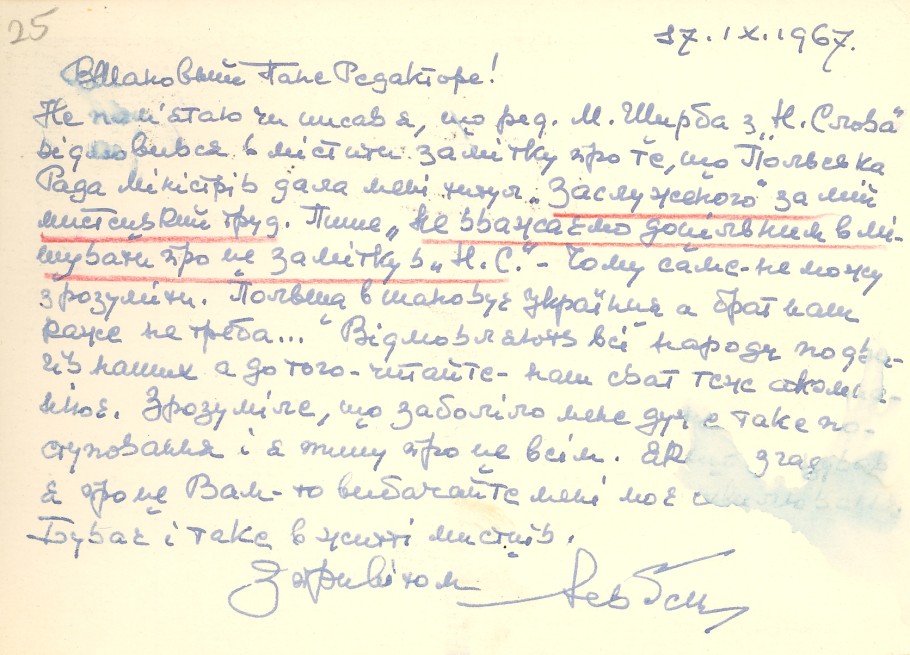 25
17.IX.1967.
Вшановний Пане Редакторе!
Не пам'ятаю чи писав я, що ред. М. Щирба з „Н. Слова"
відмовився вмістити замітку про те, що Польська
Рада міністрів дала мені титул „Заслуженого" за мій
мистецький труд. Пише „не вважаємо доцільним вмі-
щувати про це замітку в „Н.С." - Чому саме - не можу
зрозуміти. Польща вшановує українця а брат наш
каже не треба... Відмовляють всі народи подва-
гів наших а до того - читайте - наш сват теж
Зрозуміле, що заболіло мене дуже таке по-
ступовання і я пишу про це всім. згадував
я про це Вам - то вибачайте мені моє
Буває і таке в житті мистців.
З привітом